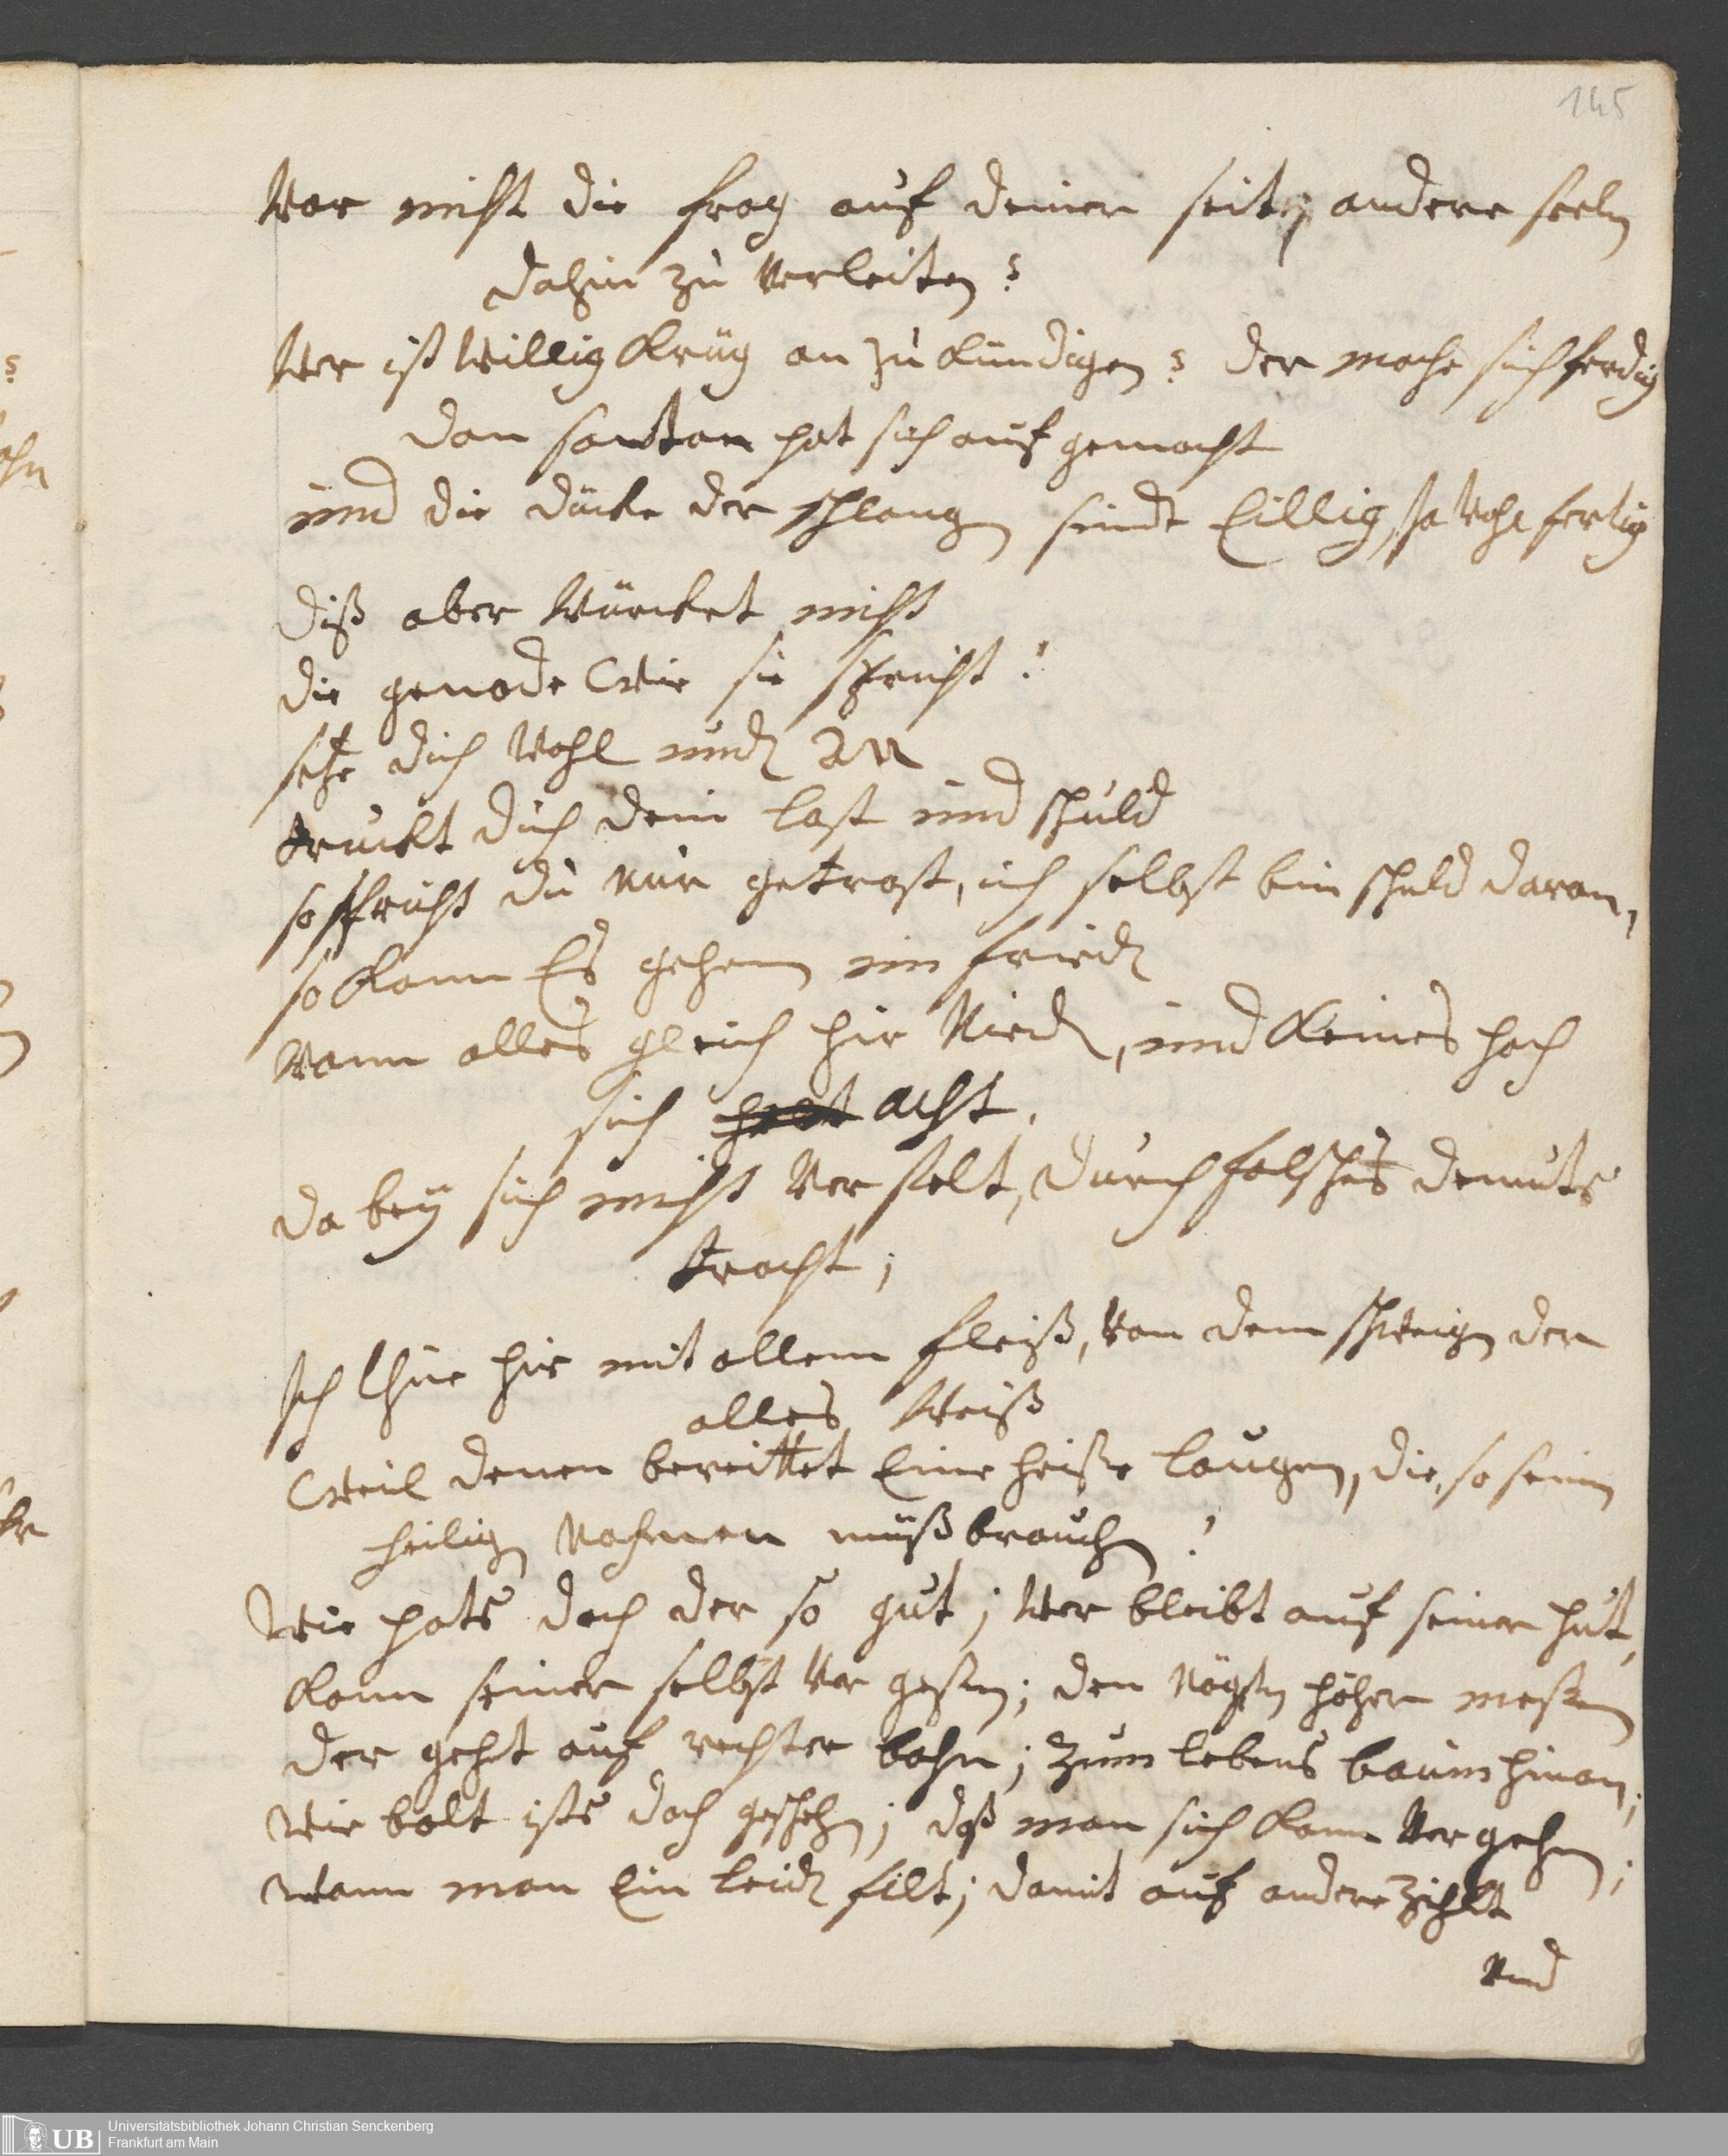 145
War nicht die frag auf deiner seiten andere seeln
dahin zu verleiten?
Wer ist willig Krüg an zu kündigen? der mache sich ferdig
dan sautan hat sich auf gemacht
und die dücke der schlangen seindt Eillig, so wohl fertig
diß aber würcket nicht
die genade wie sie spricht:
sehe dich wohl umb an
truckt dich dein last und schuld
so sprichst du nur getrost, ich selbst bin schuld daran,
so kann Es gehen im fried
wann alles gleich hir Nied, und keines hoch
sich acht.
da bey sich nicht ver stelt, durch falsches demuts
tracht;
Ich thue hir mit allem fleiß, von dem schweigen der
alles weiß
weil denen bereittet Eine heiße laugen, die, so sein
heilig Nahmen müßbrauchen!
wie hats doch der so gut; wer bleibt auf seiner hut,
kann seiner selbst ver gessen; den Nögsten höher messen
der geht auf rechter bahn; zum lebens baum hinan;
wie balt ists doch geschehn; daß man sich kann vergehen;
wann man Ein leid filt; damit auf andere zihlt
und
UB
Universitätsbibliothek Johann Christian Senckenberg
Frankfurt am Main